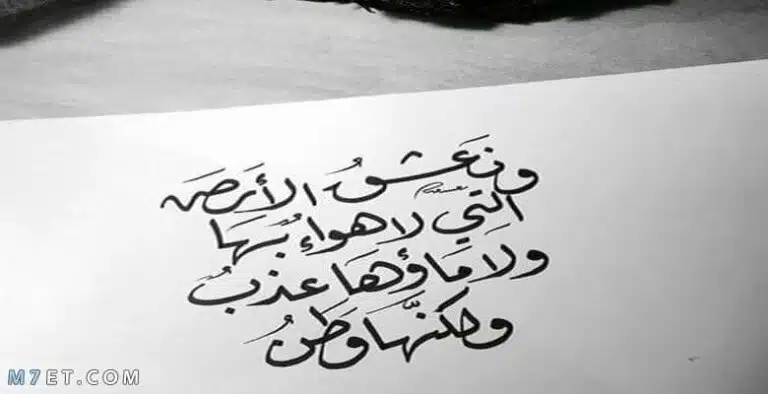 ونَعَشقُ الأَرضَ
التي لا هواءُ بهَا
ولَا مَاؤهَا عذبُ
ولكنّها وَطَنُ
M7ET.COM